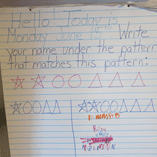 Hello Today is
Monday June 19th. Write
your name under the pattern
that matches this pattern: